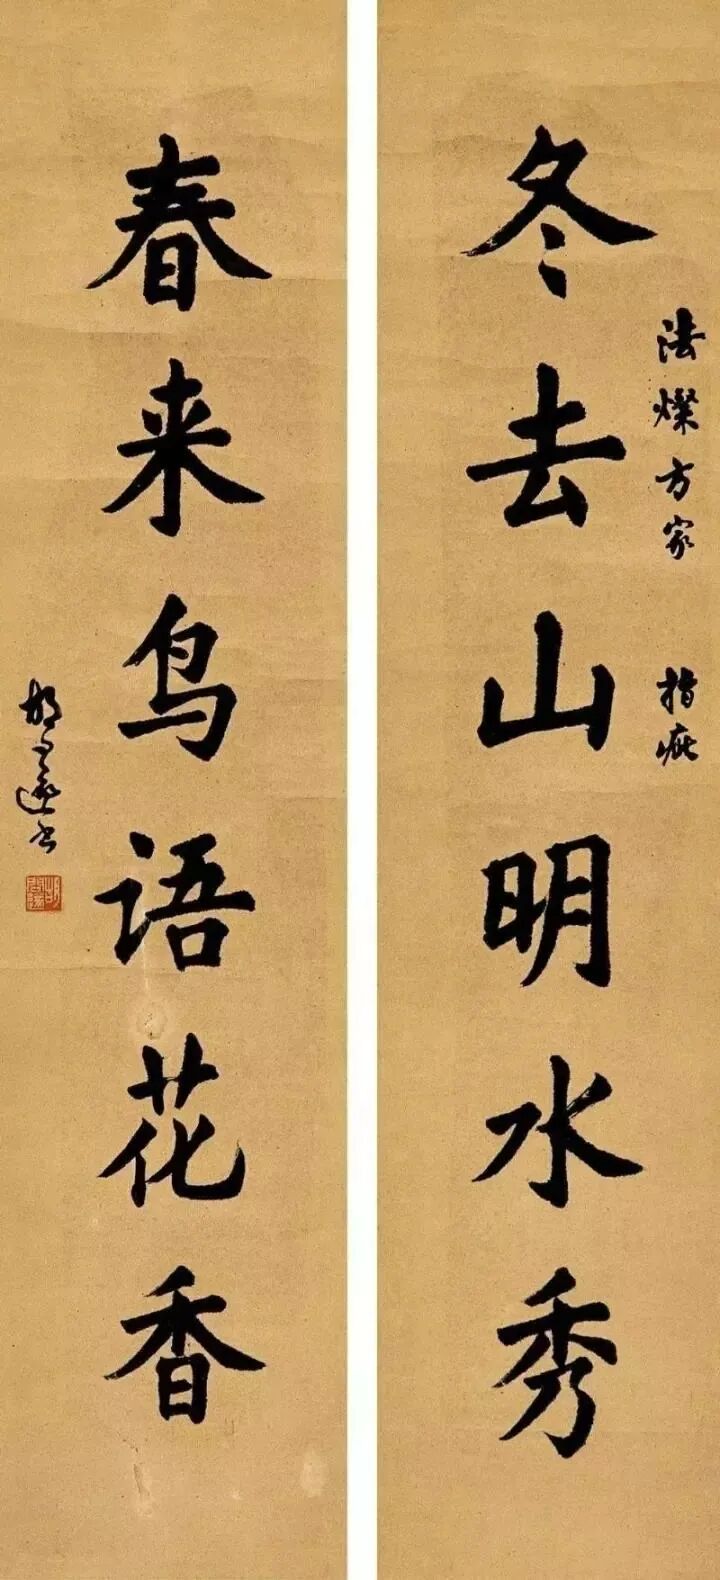 冬去山明水秀
法燦方家 指疵
春来鸟语花香